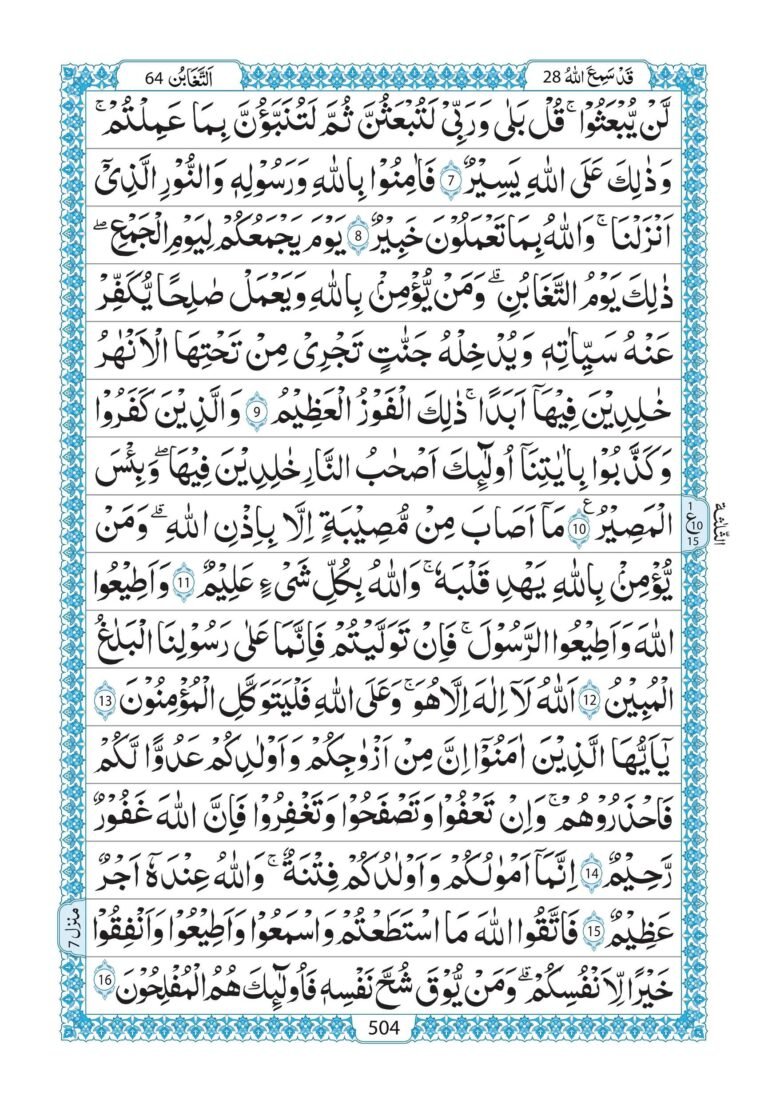 قَدْ سَمِعَ اللّٰهُ 28
اَلتَّغَابُن 64
لَّنْ يُّبْعَثُوْا ؕ قُلْ بَلٰى وَرَبِّىْ لَتُبْعَثُنَّ ثُمَّ لَتُنَبَّؤُنَّ بِمَا عَمِلْتُمْ ؕ
وَذٰلِكَ عَلَى اللّٰهِ يَسِيْرٌ 7 فَاٰمِنُوْا بِاللّٰهِ وَرَسُوْلِهٖ وَالنُّوْرِ الَّذِىْۤ
اَنْزَلْنَا ؕ وَاللّٰهُ بِمَا تَعْمَلُوْنَ خَبِيْرٌ 8 يَوْمَ يَجْمَعُكُمْ لِيَوْمِ الْجَمْعِ ۖ
ذٰلِكَ يَوْمُ التَّغَابُنِ ؕ وَمَنْ يُّؤْمِنْۢ بِاللّٰهِ وَيَعْمَلْ صٰلِحًا يُّكَفِّرْ
عَنْهُ سَيِّاٰتِهٖ وَيُدْخِلْهُ جَنّٰتٍ تَجْرِىْ مِنْ تَحْتِهَا الْاَنْهٰرُ
خٰلِدِيْنَ فِيْهَاۤ اَبَدًا ؕ ذٰلِكَ الْفَوْزُ الْعَظِيْمُ 9 وَالَّذِيْنَ كَفَرُوْا
وَكَذَّبُوْا بِاٰيٰتِنَاۤ اُولٰٓئِكَ اَصْحٰبُ النَّارِ خٰلِدِيْنَ فِيْهَا ؕ وَبِئْسَ
الْمَصِيْرُ ع 10 مَاۤ اَصَابَ مِنْ مُّصِيْبَةٍ اِلَّا بِاِذْنِ اللّٰهِ ؕ وَمَنْ
1
ع 10
15
يُّؤْمِنْۢ بِاللّٰهِ يَهْدِ قَلْبَهٗ ؕ وَاللّٰهُ بِكُلِّ شَىْءٍ عَلِيْمٌ 11 وَاَطِيْعُوا
اللّٰهَ وَاَطِيْعُوا الرَّسُوْلَ ۚ فَاِنْ تَوَلَّيْتُمْ فَاِنَّمَا عَلٰى رَسُوْلِنَا الْبَلٰغُ
الْمُبِيْنُ 12 اَللّٰهُ لَاۤ اِلٰهَ اِلَّا هُوَ ؕ وَعَلَى اللّٰهِ فَلْيَتَوَكَّلِ الْمُؤْمِنُوْنَ 13
يٰۤاَيُّهَا الَّذِيْنَ اٰمَنُوْۤا اِنَّ مِنْ اَزْوٰجِكُمْ وَاَوْلٰدِكُمْ عَدُوًّا لَّكُمْ
فَاحْذَرُوْهُمْ ۚ وَاِنْ تَعْفُوْا وَتَصْفَحُوْا وَتَغْفِرُوْا فَاِنَّ اللّٰهَ غَفُوْرٌ
رَّحِيْمٌ 14 اِنَّمَاۤ اَمْوٰلُكُمْ وَاَوْلٰدُكُمْ فِتْنَةٌ ؕ وَاللّٰهُ عِنْدَهٗۤ اَجْرٌ
عَظِيْمٌ 15 فَاتَّقُوا اللّٰهَ مَا اسْتَطَعْتُمْ وَاسْمَعُوْا وَاَطِيْعُوْا وَاَنْفِقُوْا
منزل 7
خَيْرًا لِّاَنْفُسِكُمْ ؕ وَمَنْ يُّوْقَ شُحَّ نَفْسِهٖ فَاُولٰٓئِكَ هُمُ الْمُفْلِحُوْنَ 16
504